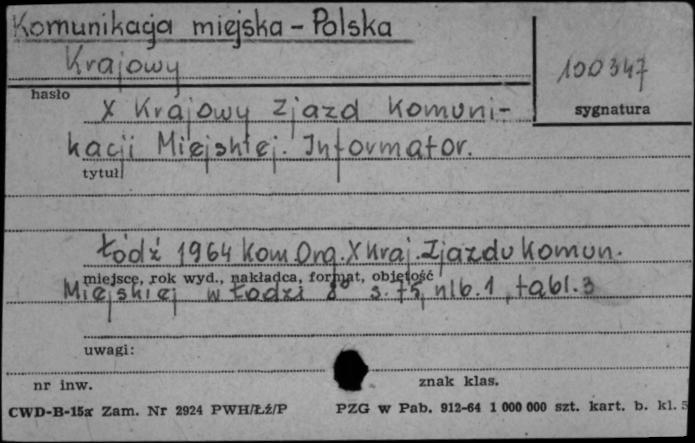 Komunikacja miejska - Polska
Krajowy
100347
hasło
sygnatura
X Krajowy Zjazd Komuni-
kacji Miejskiej. Informator.
tytuł
Łódź 1964 Kom.Org.X Kraj.Zjazdu Komun.
miejsce, rok wyd., nakładca, format, objętość
Miejskiej w Łodzi 8° s. 75, nlb.1, tabl.3
uwagi:
nr inw.
znak klas.
CWD-B-15x Zam. Nr 2924 PWH/Łź/P
PZG w Pab. 912-64 1 000 000 szt. kart. b. kl. 5